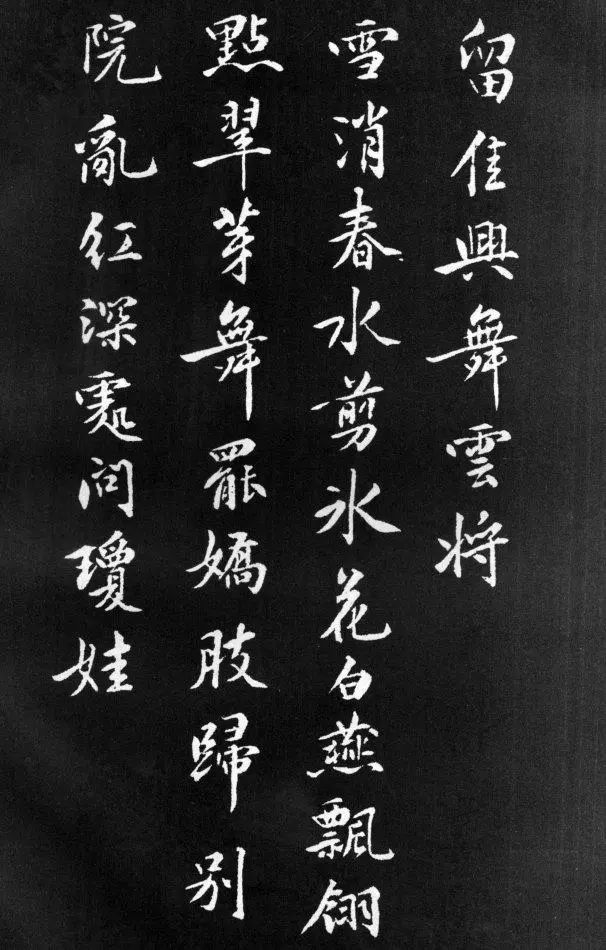 留佳興舞雲將
雪消春水剪氷花白燕飄翎
點翠芽舞罷嬌肢歸別
院亂紅深處問瓊娃